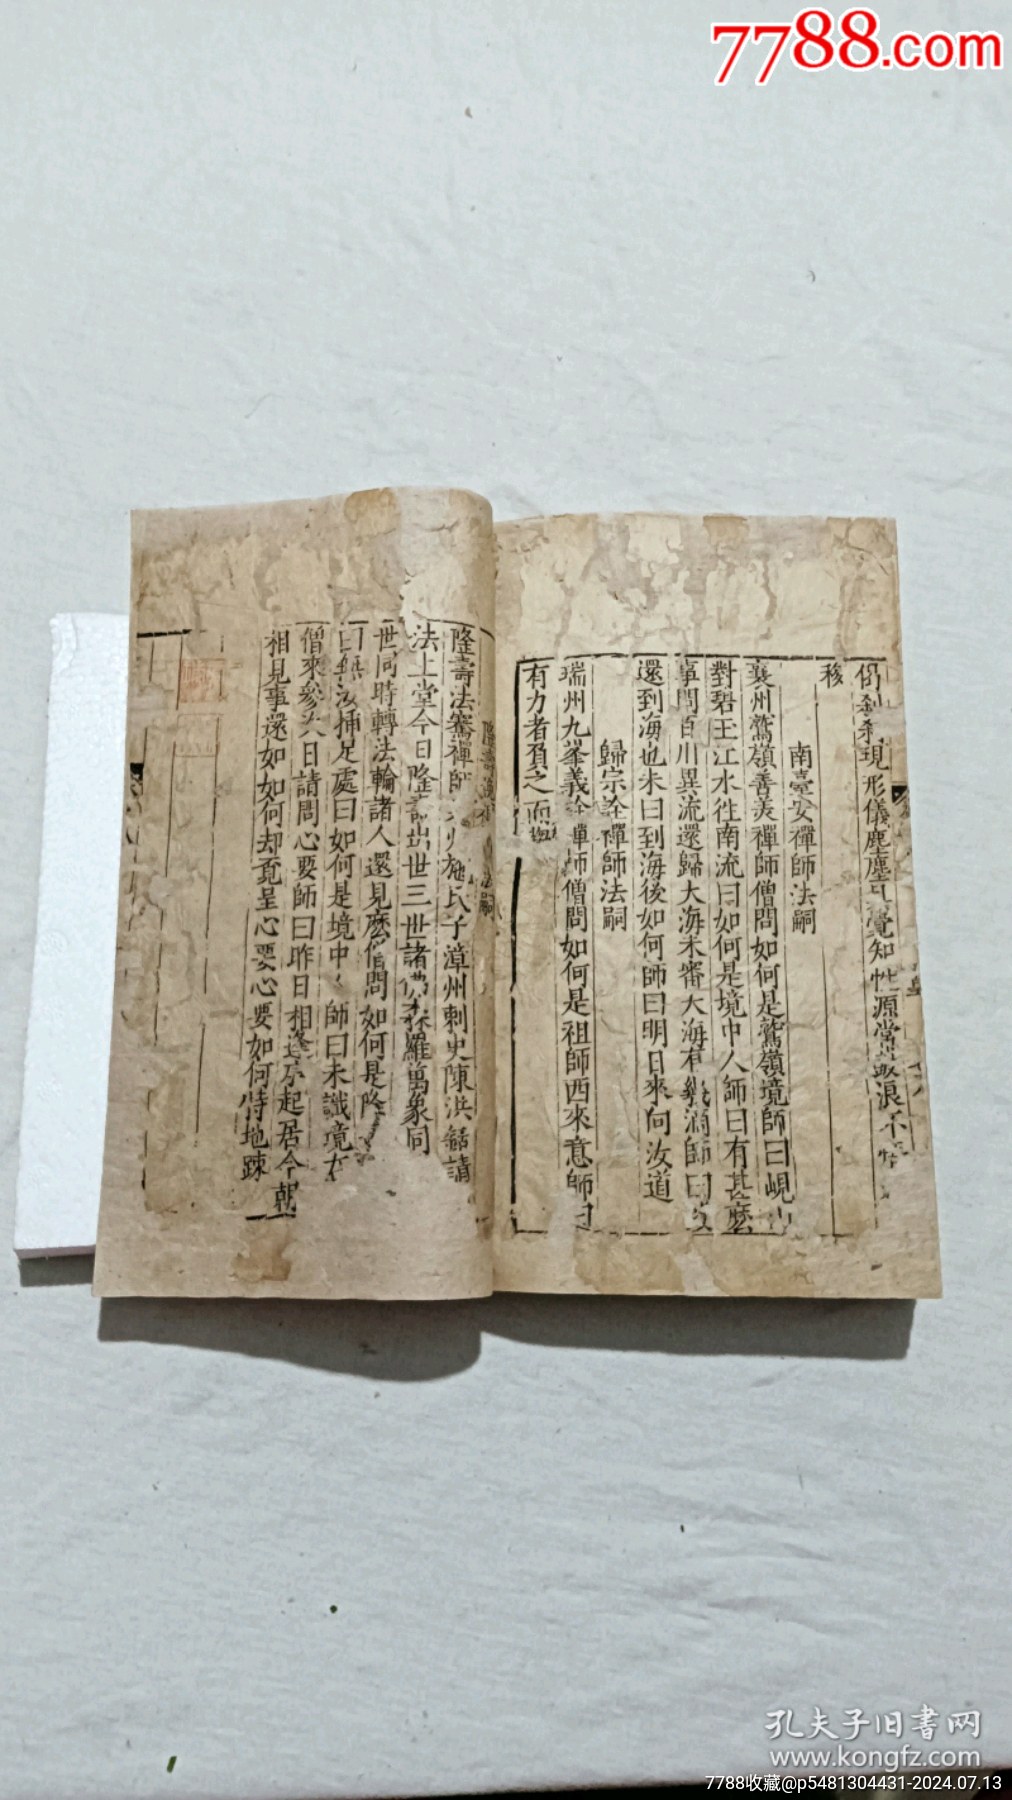 7788.com
仞剎剎現形儀塵塵覺知性源常浪不
移
南臺安禪師法嗣
襄州鷲嶺善美禪師僧問如何是鷲嶺境師曰峴山
對碧玉江水往南流曰如何是境中人師曰有甚麼
事問百川異流還歸大海未審大海有幾滴師曰汝
還到海也未曰到海後如何師曰明日來向汝道
歸宗詮禪師法嗣
瑞州九峯義詮禪師僧問如何是祖師西來意師曰
有力者負之而趨
隆壽法嗣
隆壽法騫禪師施氏子漳州刺史陳洪銛請
法上堂今日隆壽出世三世諸佛森羅萬象同
世同時轉法輪諸人還見麼僧問如何是隆
曰無汝插足處曰如何是境中師曰未識境
僧來參次日請問心要師曰昨日相逢序起居今朝
相見事還如如何却覓呈心要心要如何特地踈
孔夫子旧書网
www.kongfz.com
7788收藏@p5481304431-2024.07.13